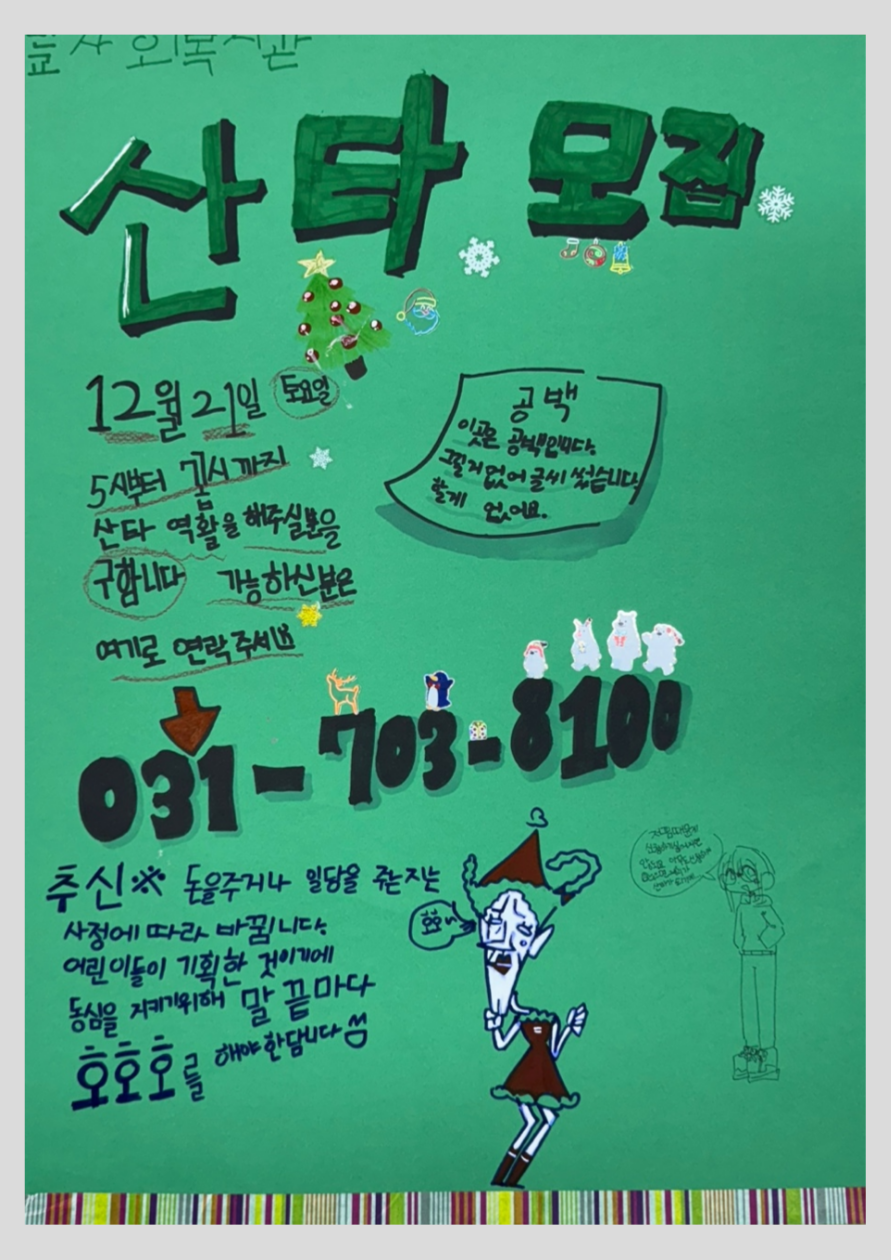 사회복지관
산타 모집
12월 21일 토요일
5시부터 7시까지
산타 역활을 해주실분을
구합니다 가능하신분은
여기로 연락주세요
공백
이곳은 공백입니다.
그릴거 없어 글씨 썼습니다.
할게 없어요.
031-703-8100
추신※ 돈을주거나 일당을 주는지는
사정에 따라 바뀝니다.
어린이들이 기획한 것이기에
동심을 지키기위해 말 끝마다
호호호를 해야한답니다